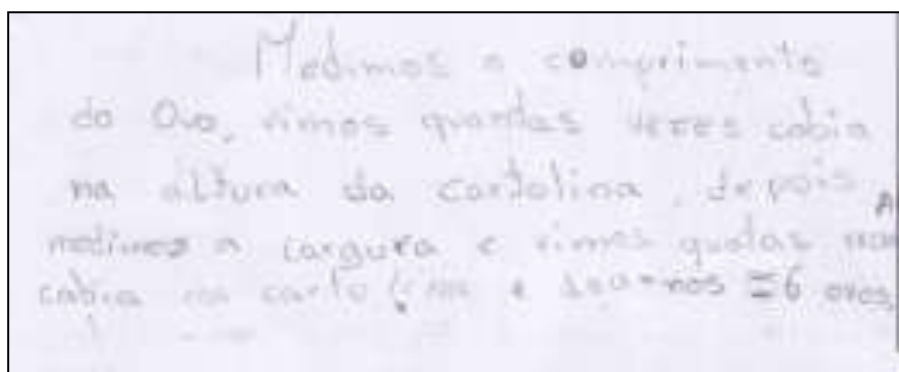 Medimos o comprimento
do Ovo, vimos quantas vezes cabia
na altura da cartolina, depois
medimos a largura e vimos quatas
cabia na cartolina e deu-nos 36 ovos,